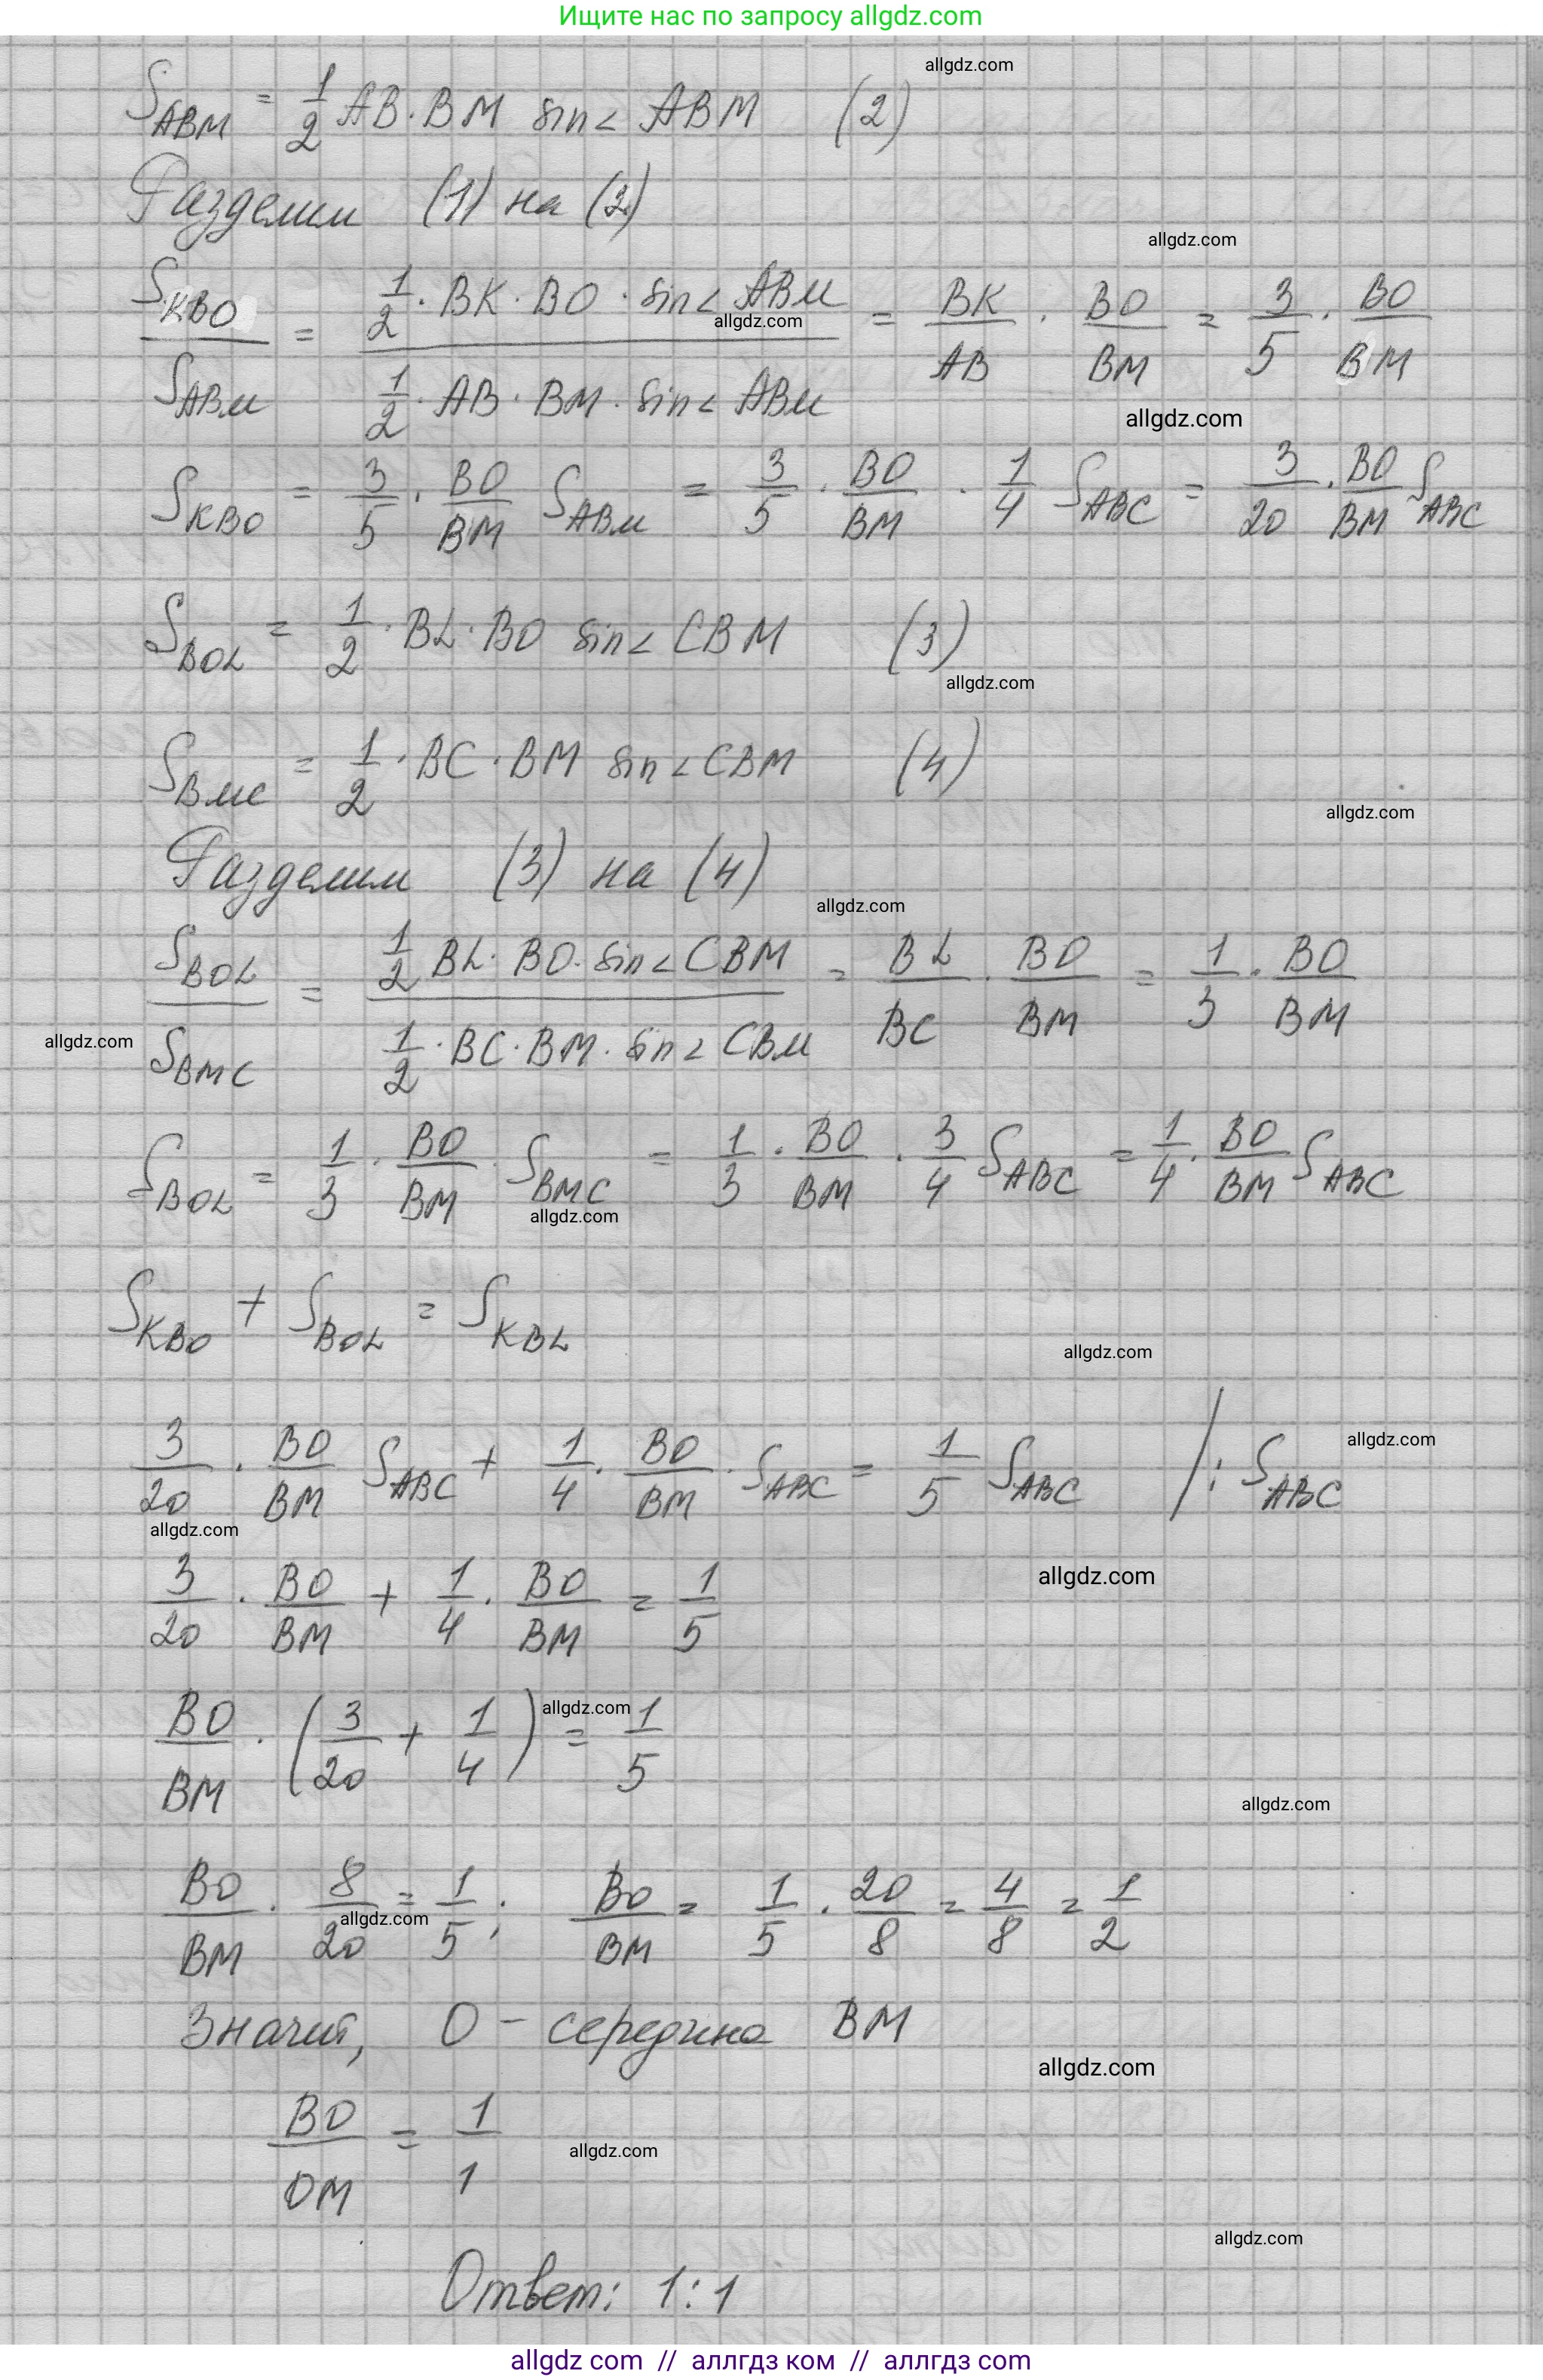 Ищите нас по запросу allgdz.com
allgdz.com
S_ABM = 1/2 AB · BM sin∠ ABM (2)
Разделим (1) на (2)
allgdz.com
S_KBO / S_ABM = (1/2 · BK · BO · sin∠ ABM) / (1/2 · AB · BM · sin∠ ABM) = BK/AB · BO/BM = 3/5 · BO/BM
allgdz.com
allgdz.com
S_KBO = 3/5 · BO/BM S_ABM = 3/5 · BO/BM · 1/4 S_ABC = 3/20 · BO/BM S_ABC
S_BOL = 1/2 · BL · BO sin∠ CBM (3)
allgdz.com
S_BMC = 1/2 · BC · BM sin∠ CBM (4)
allgdz.com
Разделим (3) на (4)
allgdz.com
S_BOL / S_BMC = (1/2 BL · BO · sin∠ CBM) / (1/2 · BC · BM · sin∠ CBM) = BL/BC · BO/BM = 1/3 · BO/BM
allgdz.com
S_BOL = 1/3 · BO/BM · S_BMC = 1/3 · BO/BM · 3/4 S_ABC = 1/4 · BO/BM S_ABC
allgdz.com
S_KBO + S_BOL = S_KBL
allgdz.com
3/20 · BO/BM S_ABC + 1/4 · BO/BM · S_ABC = 1/5 S_ABC /: S_ABC
allgdz.com
allgdz.com
3/20 · BO/BM + 1/4 · BO/BM = 1/5
allgdz.com
BO/BM · (3/20 + 1/4) = 1/5
allgdz.com
allgdz.com
BO/BM · 8/20 = 1/5; BO/BM = 1/5 · 20/8 = 4/8 = 1/2
allgdz.com
Значит, O - середина BM
allgdz.com
BO/OM = 1/1
allgdz.com
allgdz.com
Ответ: 1:1
allgdz.com // аллгдз ком // аллгдз com